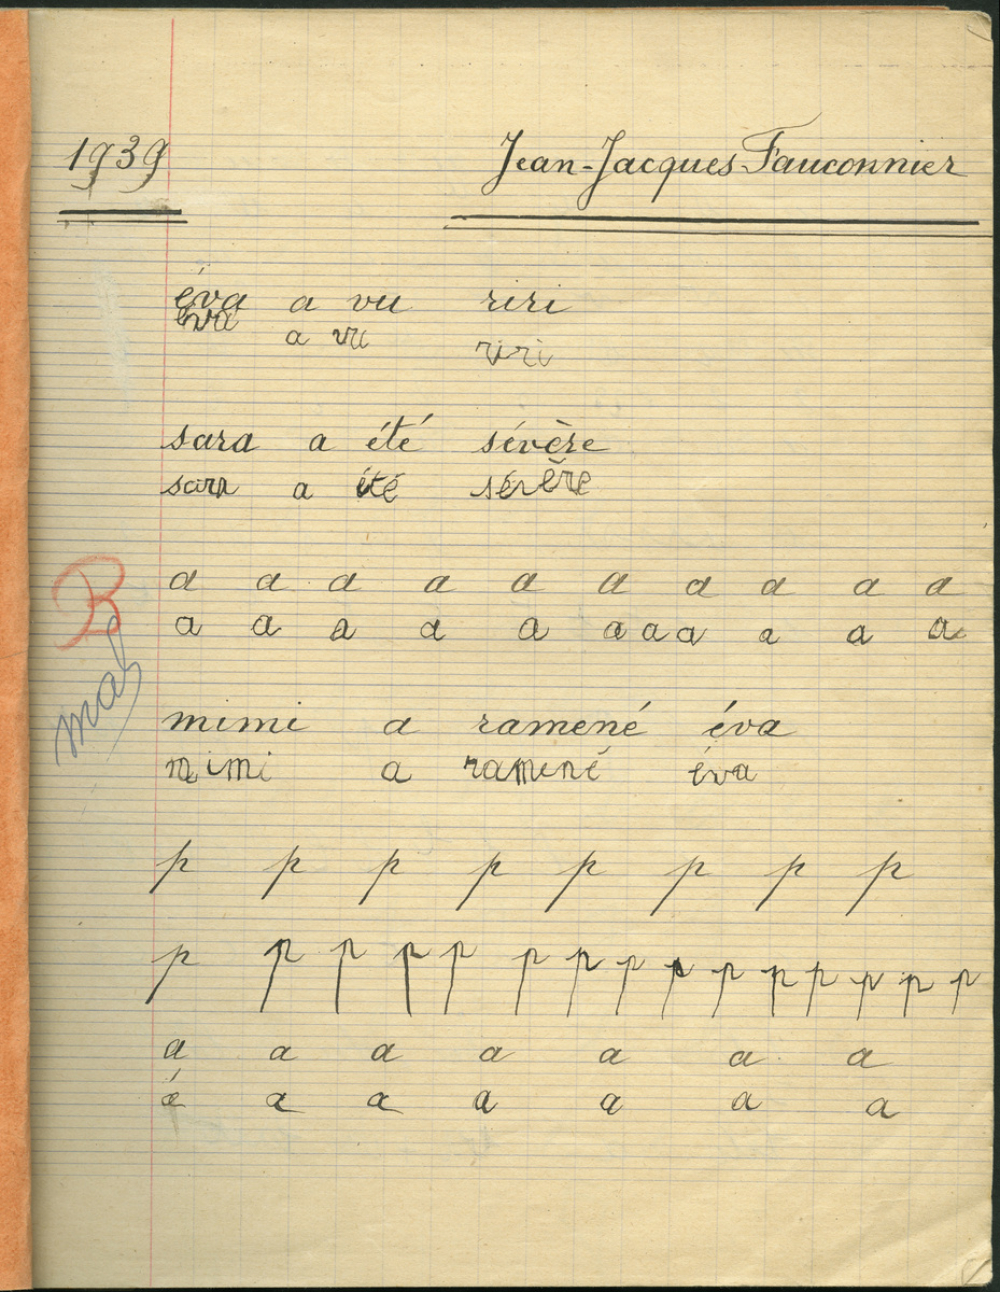 1939 Jean-Jacques Fauconnier
éva a vu riri
éva a vu riri
sara a été sévère
sara a été sévère
a a a a a a a a a a
B
a a a a a a a a a a a
mal
mimi a ramené éva
mimi a ramené éva
p p p p p p p p
p p p p p p p p p p p p p p p
a a a a a a a
á a a a a a a